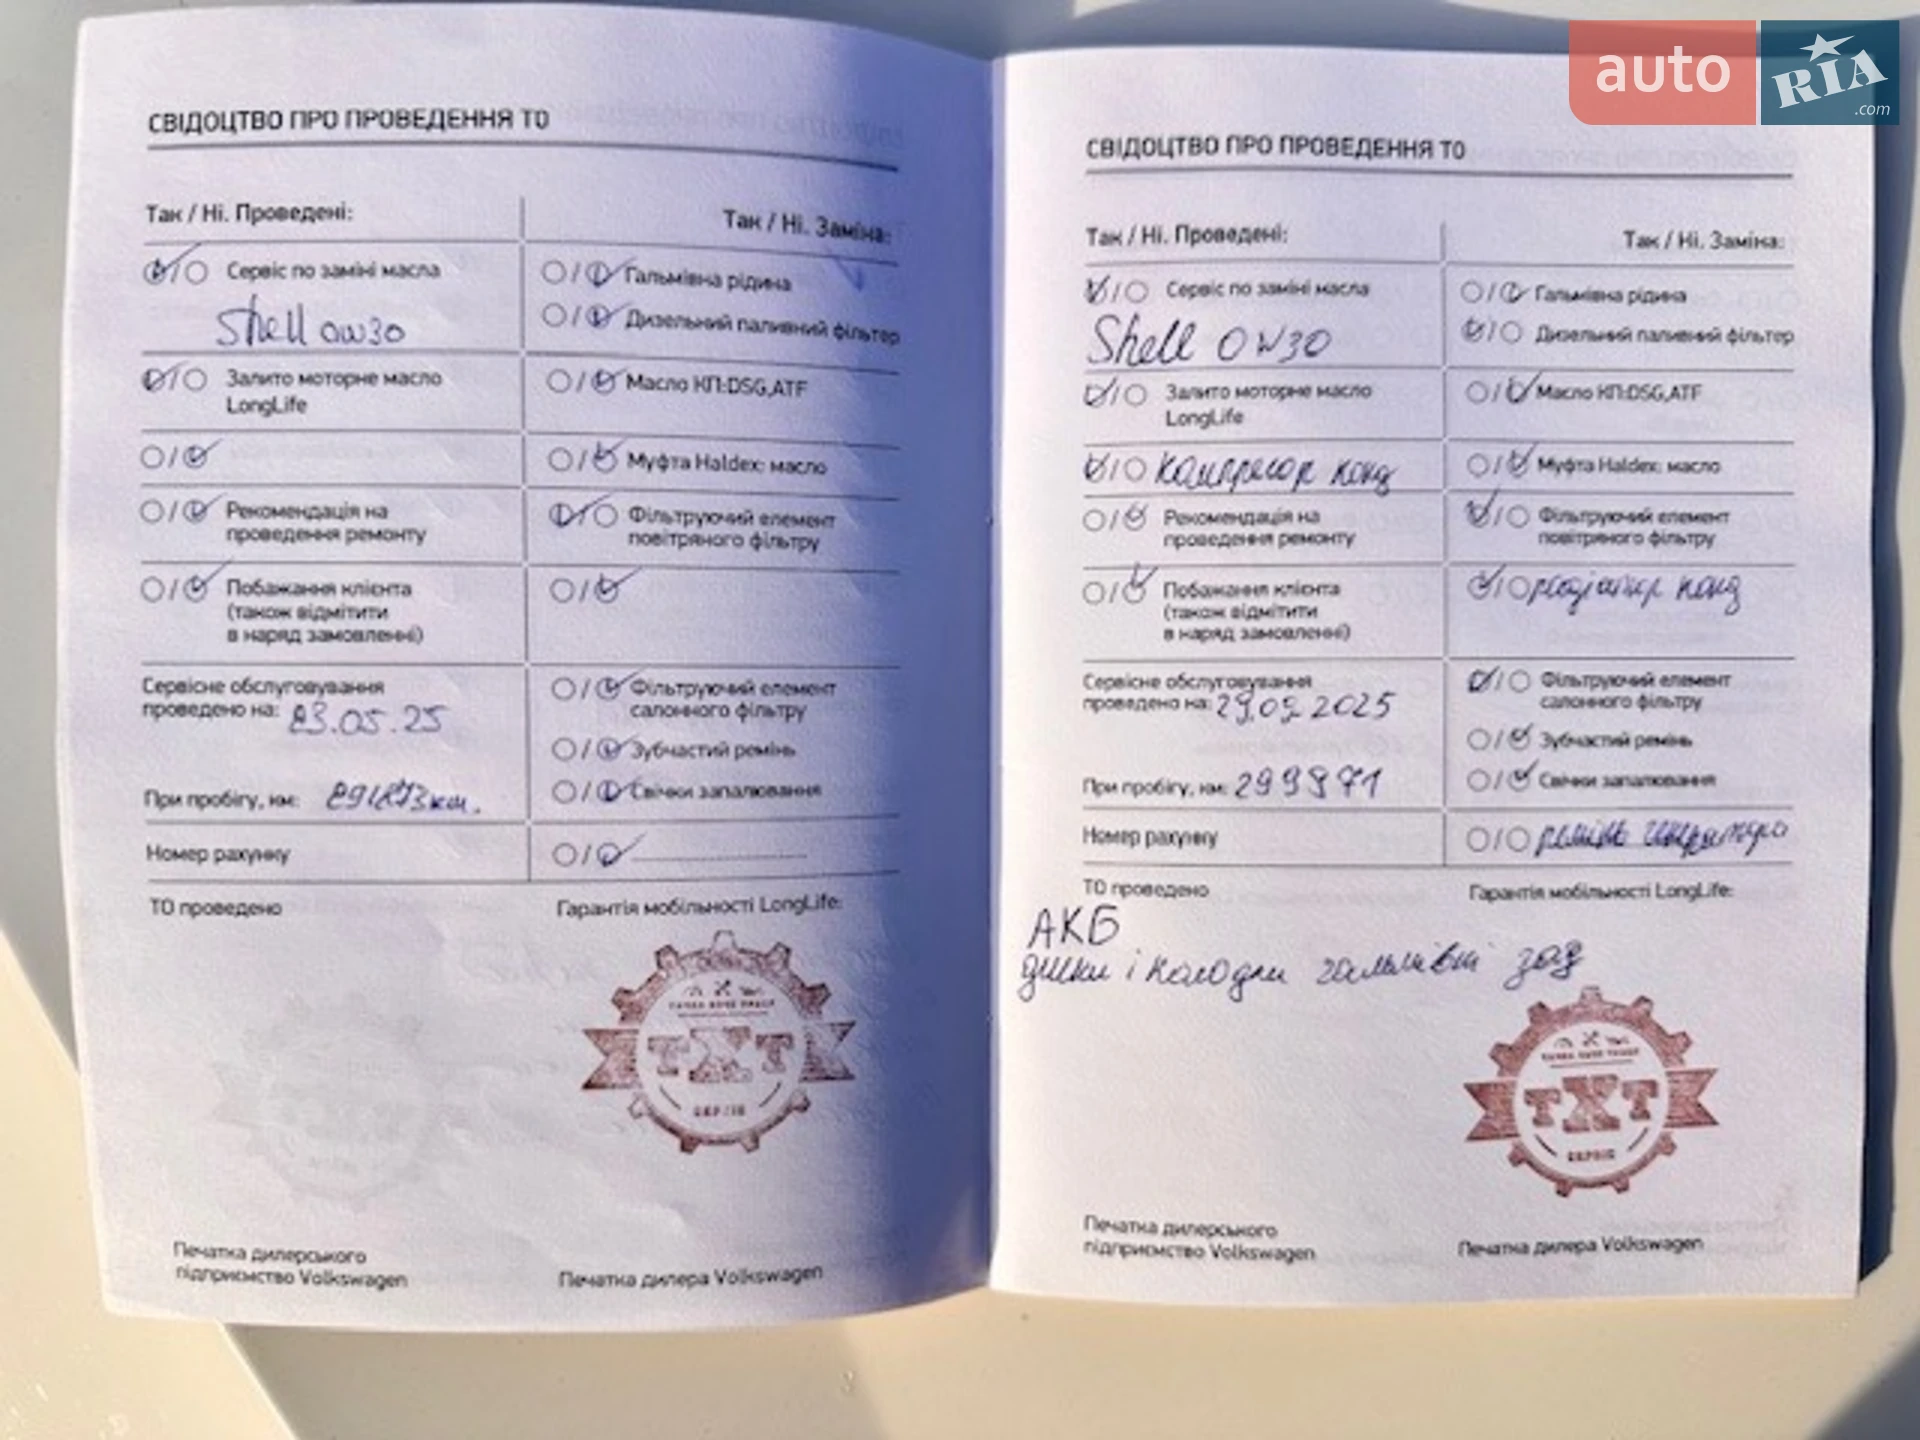 auto
RIA
.com
СВІДОЦТВО ПРО ПРОВЕДЕННЯ ТО
Так / Ні. Проведені:
Так / Ні. Заміна:
Сервіс по заміні масла
Shell 0W30
Гальмівна рідина
Дизельний паливний фільтер
Залито моторне масло
LongLife
Масло КП:DSG,ATF
Муфта Haldex: масло
Рекомендація на
проведення ремонту
Фільтруючий елемент
повітряного фільтру
Побажання клієнта
(також відмітити
в наряд замовленні)
Сервісне обслуговування
проведено на: 23.05.25
Фільтруючий елемент
салонного фільтру
Зубчастий ремінь
При пробігу, км:
Свічки запалювання
Номер рахунку
ТО проведено
Гарантія мобільності LongLife:
ТХТ
СЕРВІС
Печатка дилерського
підприємство Volkswagen
Печатка дилера Volkswagen
СВІДОЦТВО ПРО ПРОВЕДЕННЯ ТО
Так / Ні. Проведені:
Так / Ні. Заміна:
Сервіс по заміні масла
Shell 0W30
Гальмівна рідина
Дизельний паливний фільтер
Залито моторне масло
LongLife
Масло КП:DSG,ATF
Компресор конд
Муфта Haldex: масло
Рекомендація на
проведення ремонту
Фільтруючий елемент
повітряного фільтру
Побажання клієнта
(також відмітити
в наряд замовленні)
радіатор конд
Сервісне обслуговування
проведено на:
Фільтруючий елемент
салонного фільтру
Зубчастий ремінь
При пробігу, км:
Свічки запалювання
Номер рахунку
ремінь генератора
ТО проведено
Гарантія мобільності LongLife:
АКБ
диски і колодки гальмівні зад
ТХТ
СЕРВІС
Печатка дилерського
підприємство Volkswagen
Печатка дилера Volkswagen